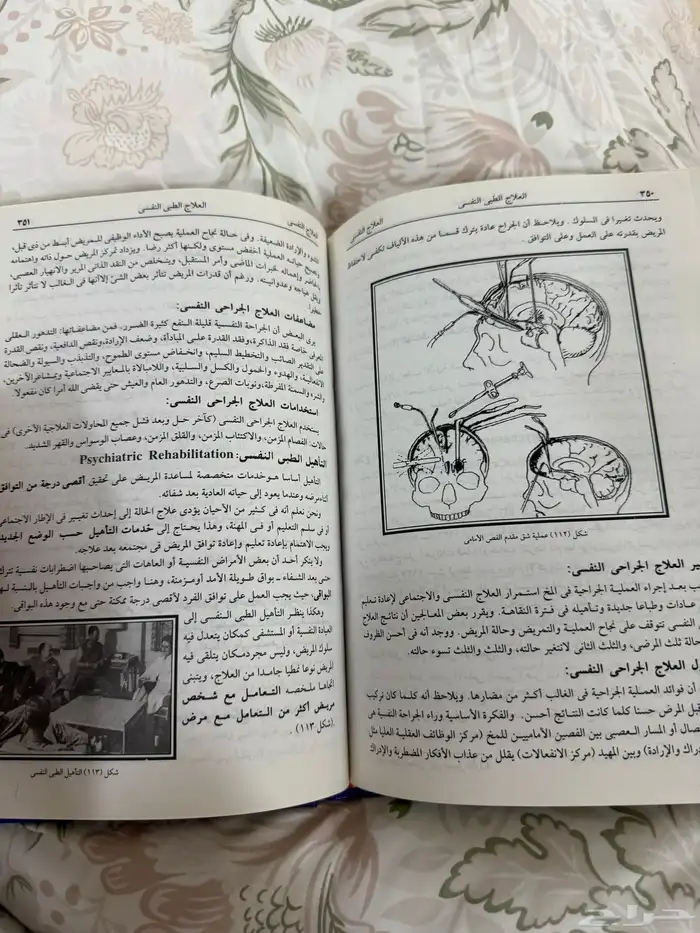 ٣٥٠
العلاج الطبى النفسى
العلاج النفسى
ويحدث تغييرا فى السلوك. ويلاحظ أن الجراح عادة يترك قسما من هذه الألياف تكفى لاحتفاظ
المريض بقدرته على العمل وعلى التوافق.
شكل (١١٢) عملية شق مقدم الفص الأمامى
العلاج الجراحى النفسى:
بعد إجراء العملية الجراحية فى المخ استمرار العلاج النفسى والاجتماعى لإعادة تعليم
عادات وطباعا جديدة وتأهيله فى فترة النقاهة. ويقرر بعض المعالجين أن نتائج العلاج
النفسى تتوقف على نجاح العملية والتمريض وحالة المريض. ووجد أنه فى أحسن الظروف
حالة ثلث المرضى، والثلث الثانى لاتتغير حالته، والثلث والثلث تسوء حالته.
العلاج الجراحى النفسى:
أن فوائد العملية الجراحية فى الغالب أكثر من مضارها. ويلاحظ أنه كلما كان تركيب
قبل المرض حسنا كلما كانت النتائج أحسن. والفكرة الأساسية وراء الجراحة النفسية هى
أو المسار العصبى بين الفصين الأماميين للمخ (مركز الوظائف العقلية العليا مثل
والإرادة) وبين المهيد (مركز الانفعالات) يقلل من عذاب الأفكار المضطربة والإدراك
العلاج الطبى النفسى
٣٥١
العلاج النفسى
المشوه والإرادة الضعيفة. وفى حالة نجاح العملية يصبح الأداء الوظيفى للمريض أبسط من ذى قبل،
وتصبح حياته العملية أخفض مستوى ولكنها أكثر رضا. ويزداد تركيز المريض حول ذاته واهتمامه
بالحاضر وإهماله لخبرات الماضى وأمر المستقبل، ويتخلص من النقد الذاتى المرير والانهيار العصبى،
ويقل هياجه وعدوانيته. ورغم أن قدرات المريض تتأثر بعض الشئ إلاأنها فى الغالب لا تتأثر تأثرا
خطيرا.
مضاعفات العلاج الجراحى النفسى:
يرى البعض أن الجراحة النفسية قليلة النفع كثيرة الضرر. فمن مضاعفاتها: التدهور العقلى
المعرفى خاصة فقد الذاكرة، وفقد القدرة على المبادأة، وضعف الإرادة، ونقص الدافعية، ونقص القدرة
على التقدير الصائب والتخطيط السليم، وانخفاض مستوى الطموح، والتذبذب والسيولة والضحالة
الانفعالية، والهدوء والخمول والكسل والسلبية، واللامبالاة بالمعايير الاجتماعية وبمشاعر الآخرين،
والشره والسمنة المفرطة، ونوبات الصرع، والتدهور العام والعيش حتى يقضى الله أمرا كان مفعولا.
استخدامات العلاج الجراحى النفسى:
يستخدم العلاج الجراحى النفسى (كآخر حل وبعد فشل جميع المحاولات العلاجية الأخرى) فى
حالات: الفصام المزمن، والاكتئاب المزمن، والقلق المزمن، وعصاب الوسواس والقهر الشديد.
التأهيل الطبى النفسى: Psychiatric Rehabilitation
التأهيل أساسا هو خدمات متخصصة لمساعدة المريض على تحقيق أقصى درجة من التوافق
أثناء مرضه وعندما يعود إلى حياته العادية بعد شفائه.
ونحن نعلم أنه فى كثير من الأحيان يؤدى علاج الحالة إلى إحداث تغيير فى الإطار الاجتماعى
أو فى سلم التعليم أو فى المهنة، وهذا يحتاج إلى خدمات التأهيل حسب الوضع الجديد
ويجب الاهتمام بإعادة تعليم وإعادة توافق المريض فى مجتمعه بعد علاجه.
ولا ينكر أحد أن بعض الأمراض النفسية أو العاهات التى يصاحبها اضطرابات نفسية تترك
حتى بعد الشفاء بواق طويلة الأمد أو مزمنة، وهنا واجب من واجبات التأهيل بالنسبة لهذه
البواقى، حيث يجب العمل على توافق الفرد لأقصى درجة ممكنة حتى مع وجود هذه البواقى.
وهكذا ينظر التأهيل الطبى النفسى إلى
العيادة النفسية أو المستشفى كمكان يتعدل فيه
سلوك المريض، وليس مجرد مكان يتلقى فيه
المريض نوعا نمطيا جامدا من العلاج، ويتبنى
اتجاها ملخصه التعامل مع شخص
مريض أكثر من التعامل مع مرض
(شكل ١١٣).
شكل (١١٣) التأهيل الطبى النفسى
حراج